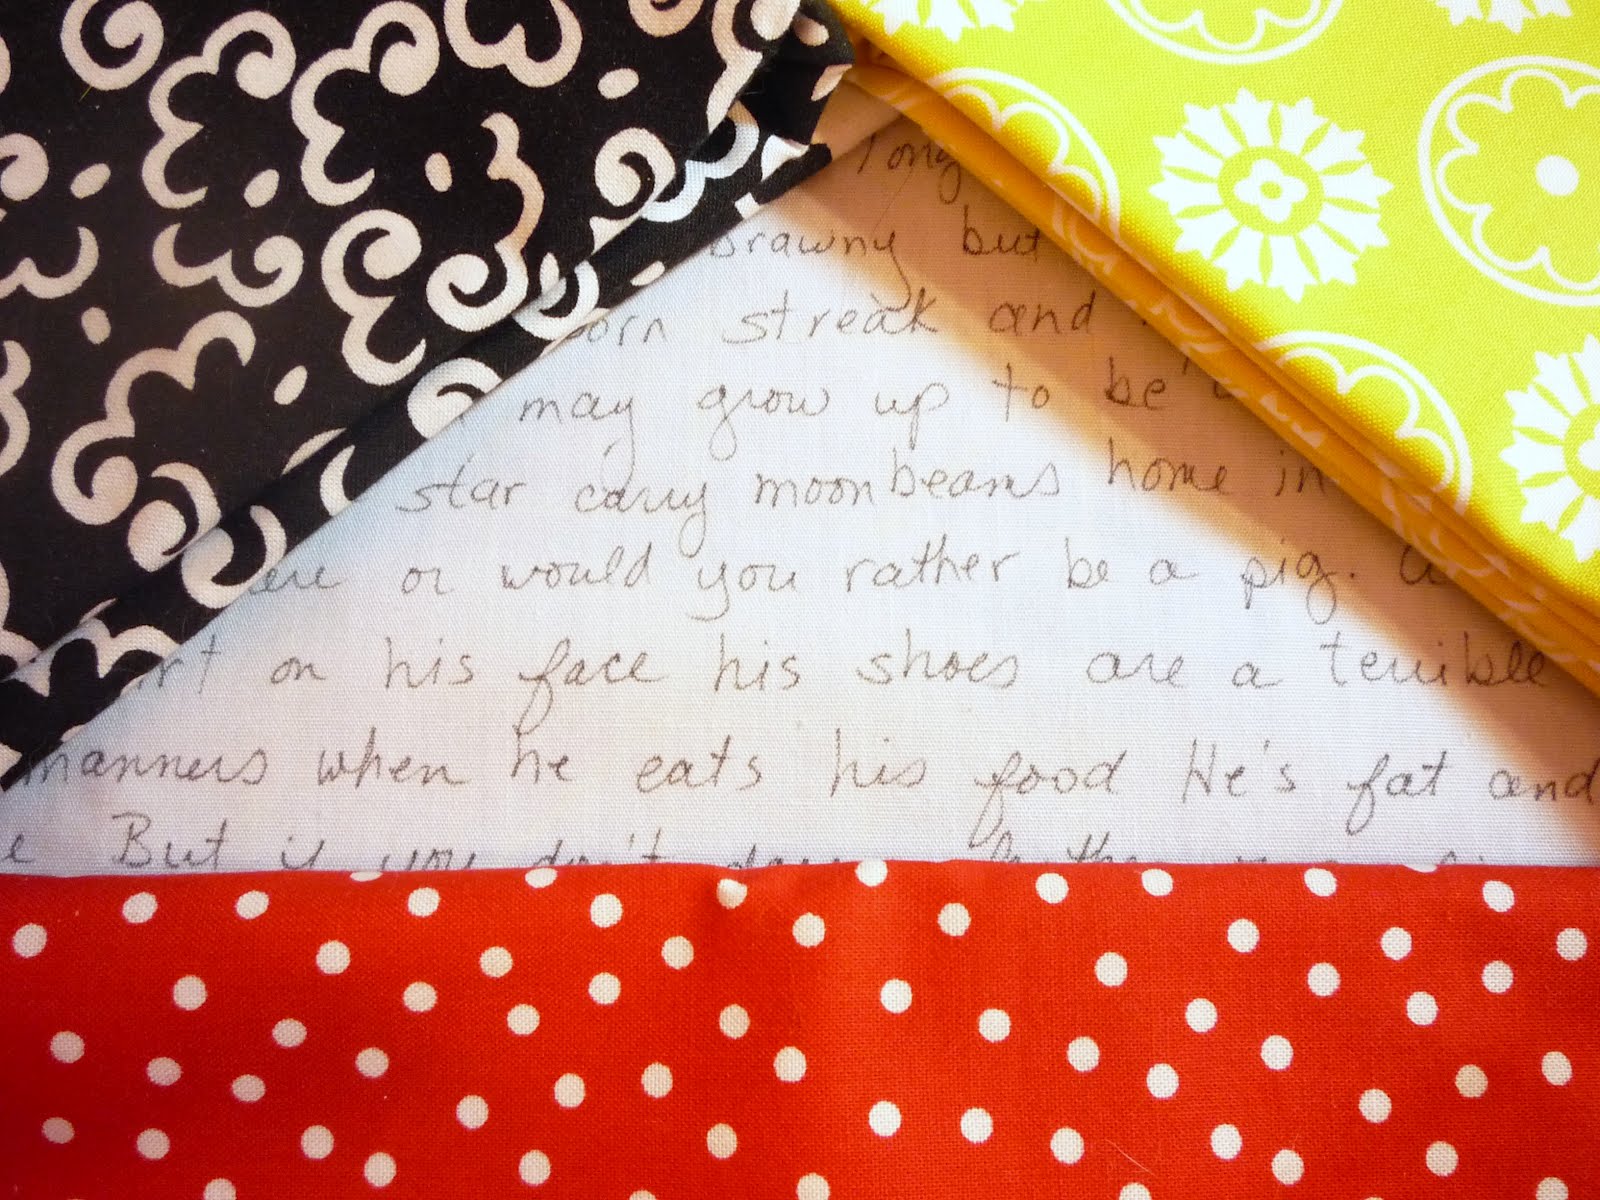 long
brawny but
orn streak and
may grow up to be a
star carry moonbeams home in
ere or would you rather be a pig. a
rt on his face his shoes are a terrible
manners when he eats his food He's fat and
e But if you don't